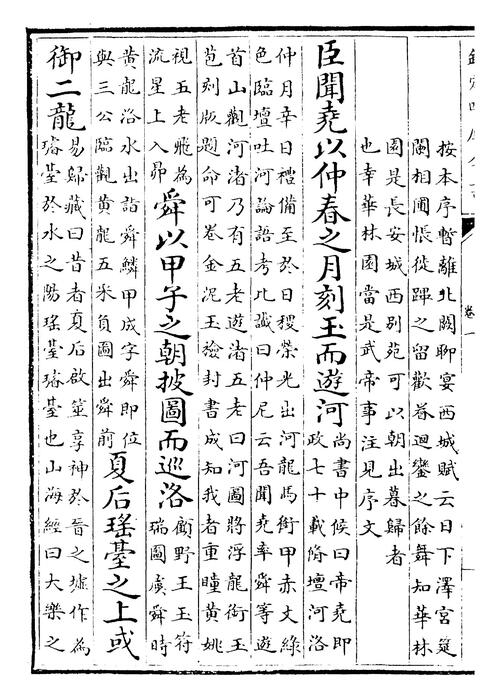 卷一
按本序暫離北闕聊宴西城賦云日下澤宮筵
闌相圃悵徙蹕之留歡眷迴鑾之餘舞知華林
園是長安城西別苑可以朝出暮歸者
也幸華林園當是武帝事注見序文
臣聞堯以仲春之月刻玉而遊河
尚書中候曰帝堯即
政七十載脩壇河洛
仲月辛日禮備至於日稷榮光出河龍馬銜甲赤文綠
色臨壇吐河論語考比讖曰仲尼云吾聞堯率舜等遊
首山觀河渚乃有五老遊渚五老曰河圖將浮龍銜玉
苞刻版題命可卷金泥玉檢封書成知我者重瞳黃姚
視五老飛為
流星上入昴
舜以甲子之朝披圖而巡洛
顧野王玉符
瑞圖虞舜時
黃龍洛水出詣舜鱗甲成字舜即位
與三公臨觀黃龍五采負圖出舜前
夏后瑤臺之上或
御二龍
易歸藏曰昔者夏后啟筮享神於晉之墟作為
璿臺於水之陽瑤臺璿臺也山海經曰大樂之